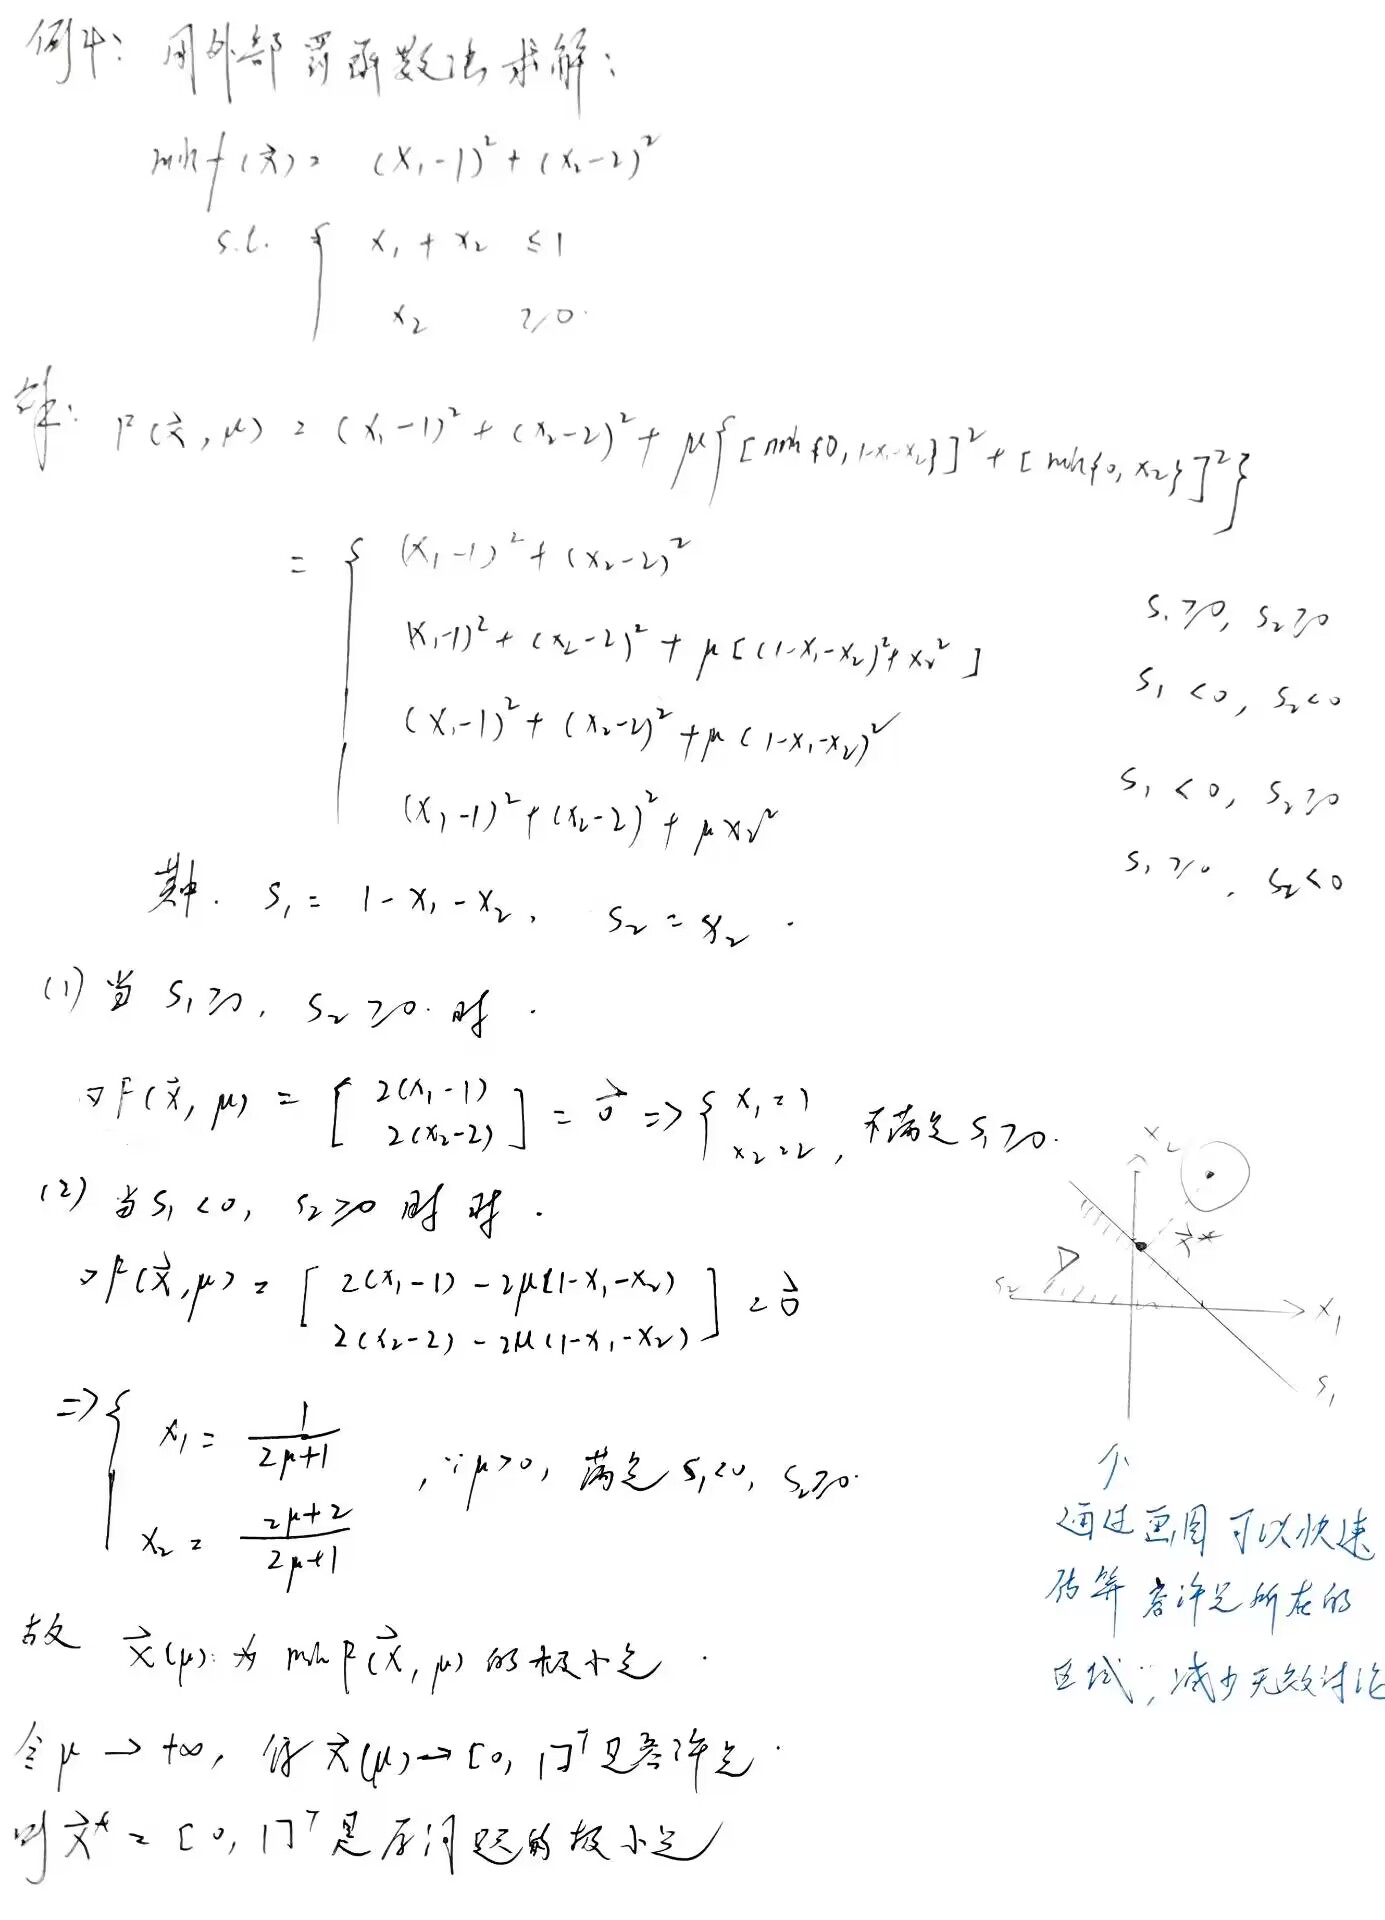 例4: 用外部罚函数法求解:
min f(x⃗) = (x₁-1)² + (x₂-2)²
s.t. { x₁ + x₂ ≤ 1
x₂ ≥ 0.
解: F(x⃗, μ) = (x₁-1)² + (x₂-2)² + μ{[min{0, 1-x₁-x₂}]² + [min{0, x₂}]²}
= { (x₁-1)² + (x₂-2)² s₁≥0, s₂≥0
(x₁-1)² + (x₂-2)² + μ[(1-x₁-x₂)²+x₂²] s₁<0, s₂<0
(x₁-1)² + (x₂-2)² + μ(1-x₁-x₂)² s₁<0, s₂≥0
(x₁-1)² + (x₂-2)² + μx₂² s₁≥0, s₂<0
其中. s₁ = 1-x₁-x₂, s₂ = x₂.
(1) 当 s₁≥0, s₂≥0. 时.
∇F(x⃗, μ) = [ 2(x₁-1)
2(x₂-2) ] = 0⃗ => { x₁=1
x₂=2, 不满足 s₁≥0.
(2) 当 s₁<0, s₂≥0 时 时.
∇F(x⃗, μ) = [ 2(x₁-1) - 2μ(1-x₁-x₂)
2(x₂-2) - 2μ(1-x₁-x₂) ] = 0⃗
=> { x₁ = 1/(2μ+1)
x₂ = (2μ+2)/(2μ+1) , ∵μ>0, 满足 s₁<0, s₂≥0.
故 x⃗(μ) 为 min F(x⃗, μ) 的极小点.
令 μ → +∞, 得 x⃗(μ) → [0, 1]ᵀ 是容许点.
则 x⃗* = [0, 1]ᵀ 是原问题的极小点
x₂
x⃗*
D
s₂
x₁
s₁
↑
通过画图可以快速
估算容许点所在的
区域, 减少无效讨论